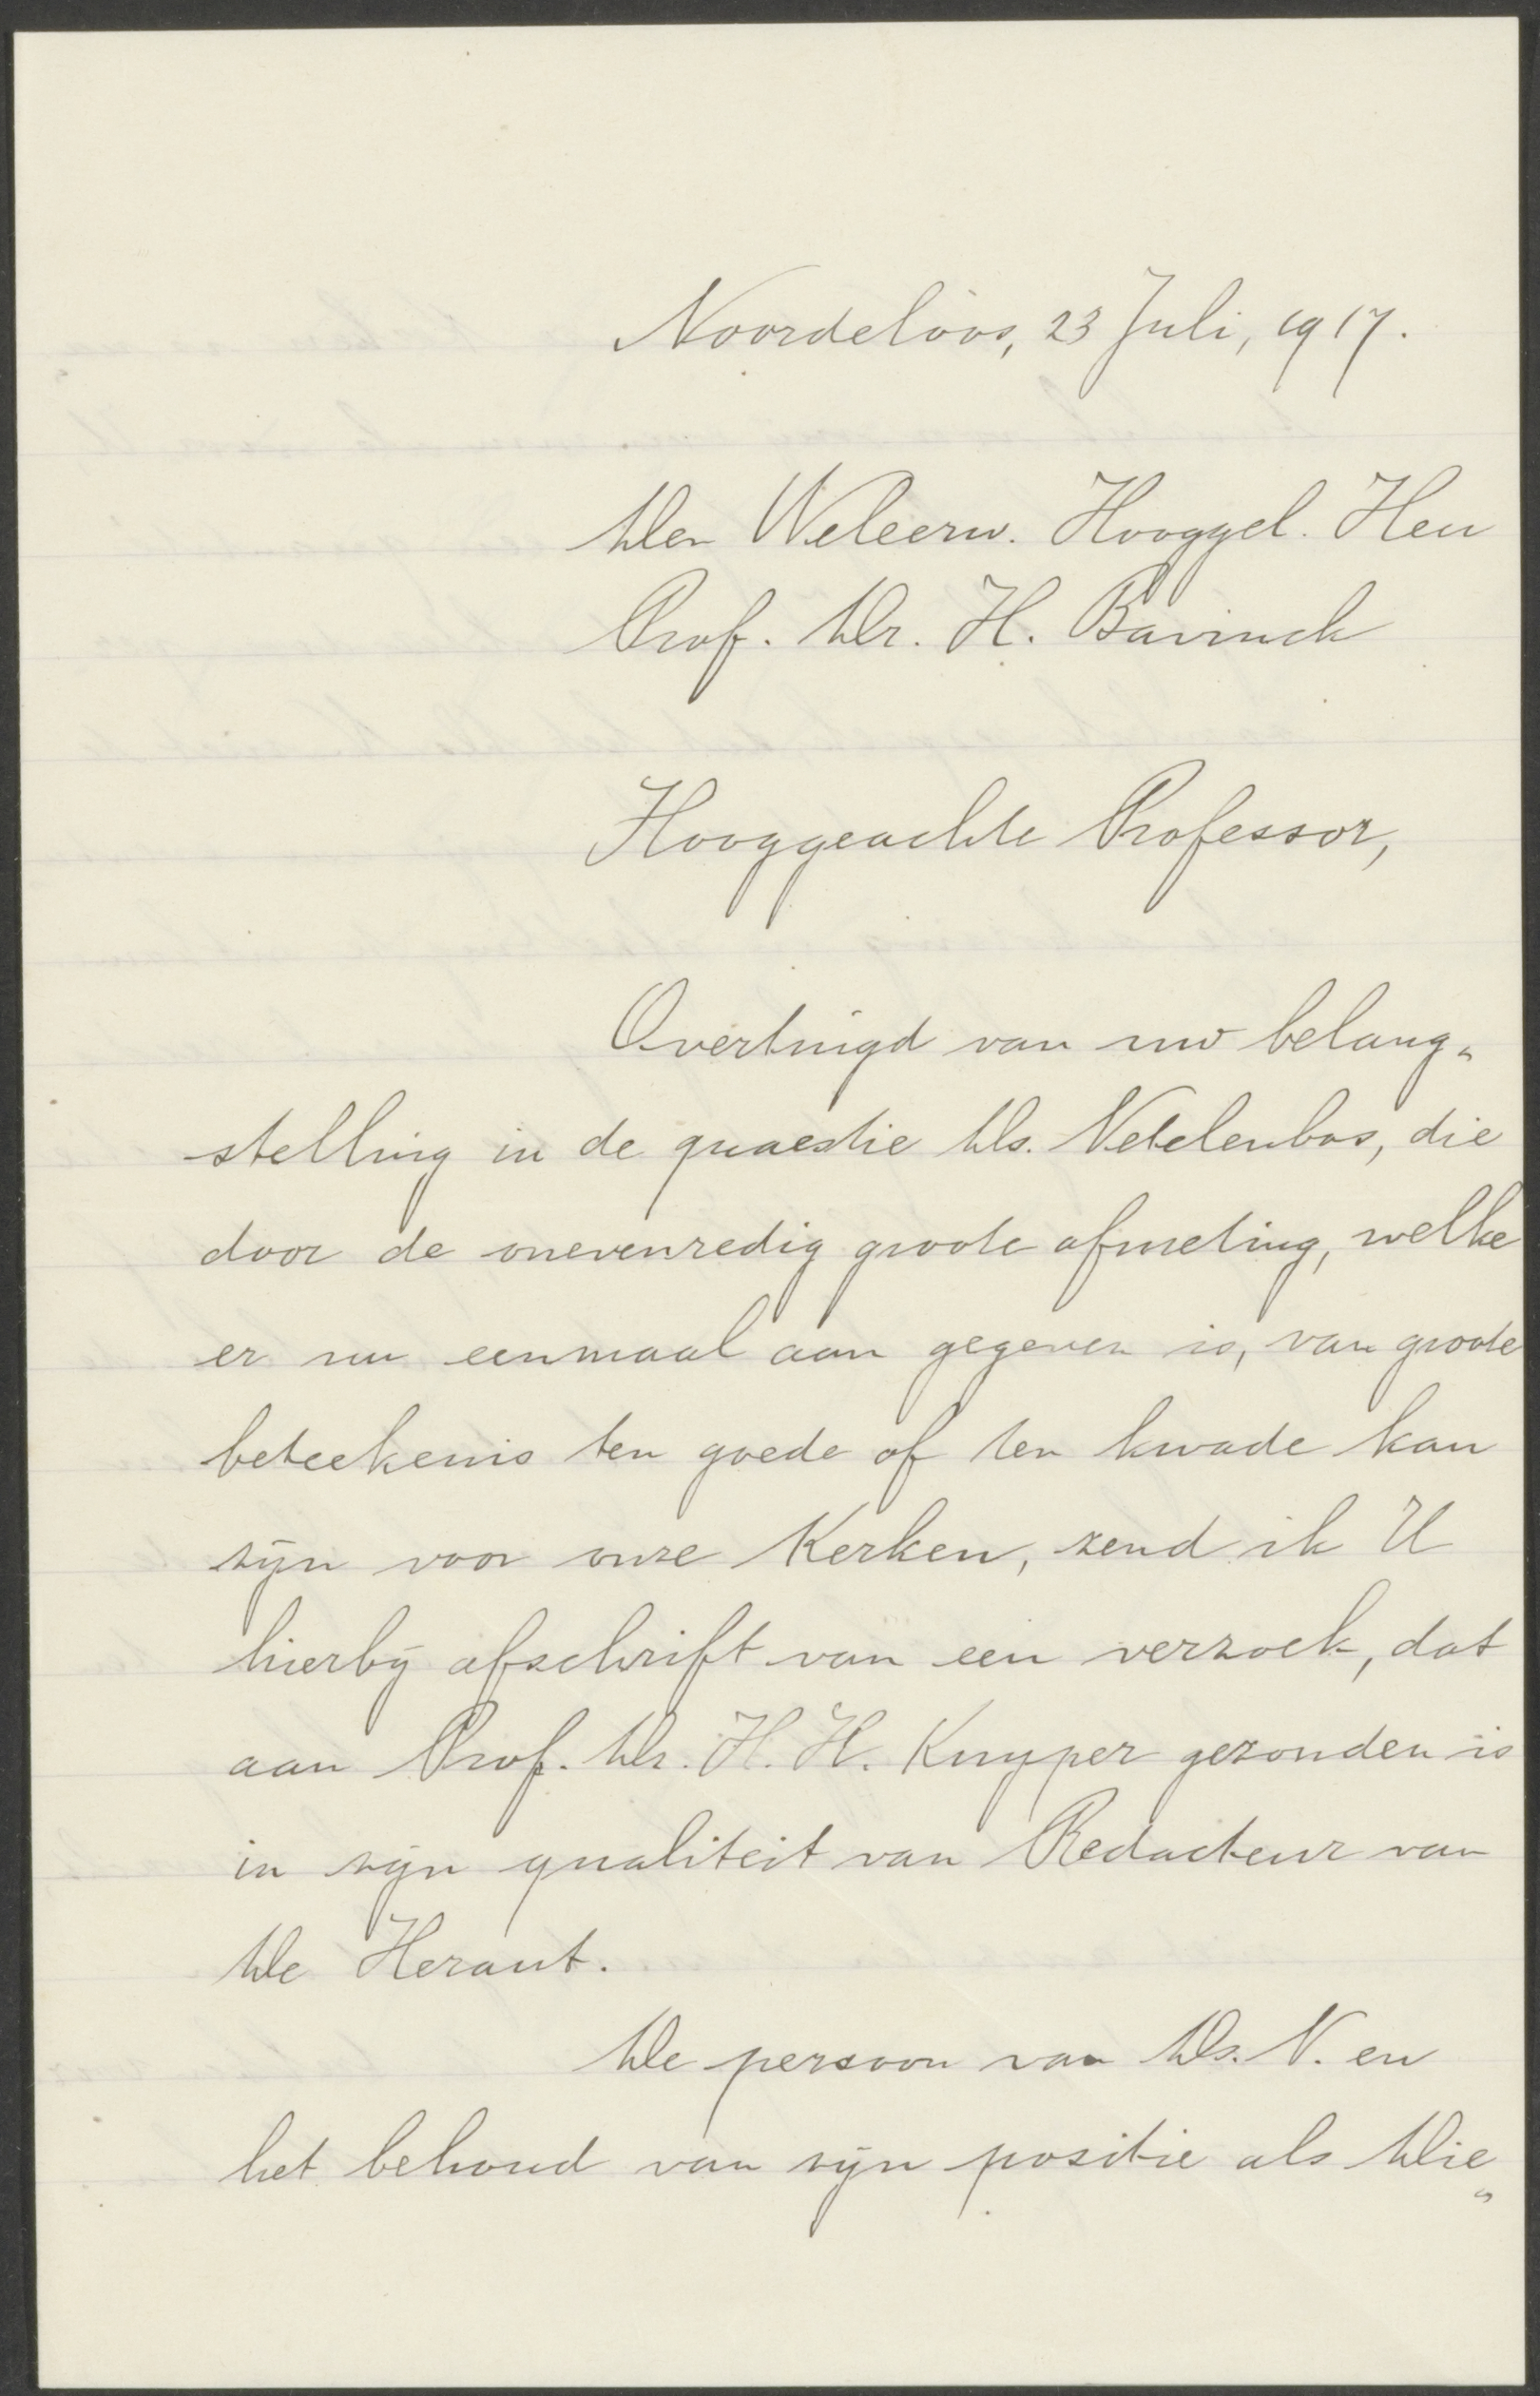 Noordeloos, 23 Juli, 1917.
Den Weleerw. Hooggel. Heer
Prof. Dr. H. Bavinck
Hooggeachte Professor,
Overtuigd van uw belang„
stelling in de quaestie Ds. Netelenbos, die
door de onevenredig groote afmeting, welke
er nu eenmaal aan gegeven is, van groote
beteekenis ten goede of ten kwade kan
zijn voor onze Kerken, zend ik U
hierbij afschrift van een verzoek, dat
aan Prof. Dr. H. H. Kuyper gezonden is
in zijn qualiteit van Redacteur van
De Heraut.
De persoon van Ds. N. en
het behoud van zijn positie als Die„